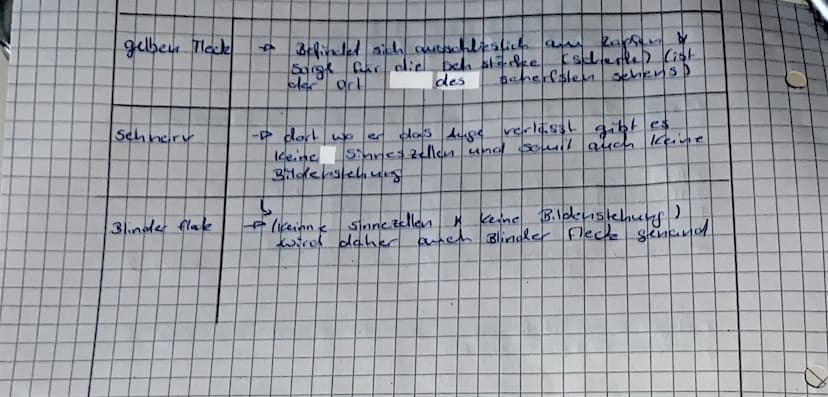 gelben Fleck → Befindet sich ausschlieslich am Zapfen &
sorgt für die seh stärke (scherfe) (ist
der ort des scherfsten sehens)
Sehnerv → dort wo er das Auge verlässt gibt es
keine sinneszellen und somit auch keine
Bildenstehung
Blinder flek → (keinne sinnezellen & keine Bildenstehung)
wird daher auch Blinder Fleck genand